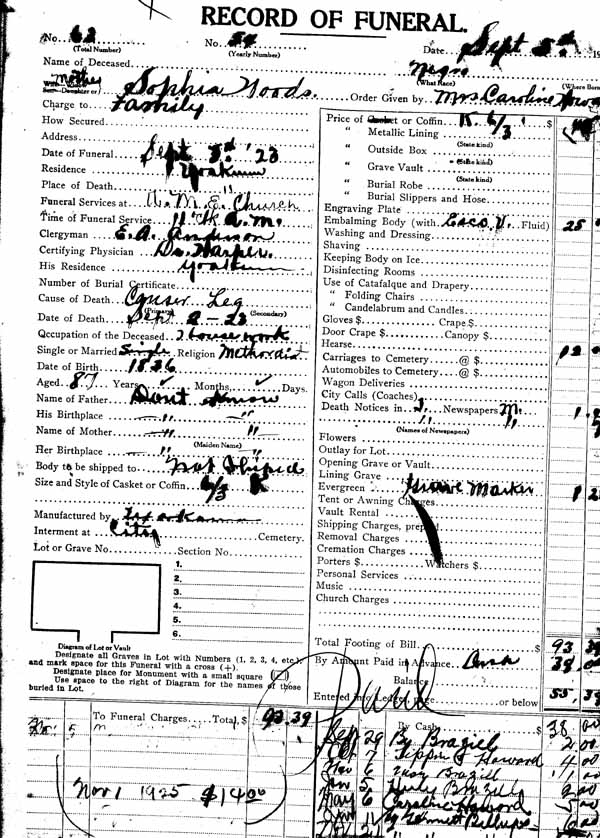 RECORD OF FUNERAL.
No. 62 No. 54 Date Sept 3rd 19
(Total Number) (Yearly Number)
Name of Deceased Negro
(What Race) (Where Born
mother Sophia Woods.
Wife Son Daughter or) Order Given by Mrs Caroline
Charge to Family
How Secured
Address
Date of Funeral Sept 3rd '23
Residence Yoakum
Place of Death "
Funeral Services at A. M. E. Church
Time of Funeral Service 11 A.M.
Clergyman E. A. Anderson
Certifying Physician Dr. Harper.
His Residence Yoakum
Number of Burial Certificate
Cause of Death Cancer Leg
(Primary) (Secondary)
Date of Death Sept 2-23
Occupation of the Deceased House work
Single or Married Single Religion Methodist
Date of Birth 1836
Aged 87 Years ✓ Months ✓ Days.
Name of Father Dont Know
His Birthplace " "
Name of Mother " "
(Maiden Name)
Her Birthplace " "
Body to be shipped to Not Shiped
Size and Style of Casket or Coffin 6/3 K
Manufactured by Texarkana
Interment at City Cemetery.
Lot or Grave No. Section No.
1.
2.
3.
4.
5.
6.
Diagram of Lot or Vault
Designate all Graves in Lot with Numbers (1, 2, 3, 4, etc.)
and mark space for this Funeral with a cross (+).
Designate place for Monument with a small square (□)
Use space to the right of Diagram for the names of those
buried in Lot.
Price of Casket or Coffin K. 6/3 $
" Metallic Lining
(State kind)
" Outside Box
(State kind)
" Grave Vault
" Burial Robe (State kind)
" Burial Slippers and Hose
Engraving Plate
Embalming Body (with Esco V. Fluid) 25
Washing and Dressing
Shaving
Keeping Body on Ice
Disinfecting Rooms
Use of Catafalque and Drapery
" Folding Chairs
" Candelabrum and Candles
Gloves $ Crape $
Door Crape $ Canopy $
Hearse
Carriages to Cemetery @ $ 12
Automobiles to Cemetery @ $
Wagon Deliveries
City Calls (Coaches)
Death Notices in Newspapers
(Names of Newspapers)
Flowers
Outlay for Lot
Opening Grave or Vault
Lining Grave
Evergreen Grave Marker
Tent or Awning Charges
Vault Rental
Shipping Charges, prepaid
Removal Charges
Cremation Charges
Porters $ Watchers $
Personal Services
Music
Church Charges
Total Footing of Bill $ 93 39
By Amount Paid in Advance Cash 38 00
Balance
Entered into Ledger, page or below 55 39
To Funeral Charges Total, $ 93.39
Nov 1 1925 $14.00
Paid
By Cash $ 38 00
Sep 29 By Braziel 2 00
Oct 7 Howard 4 00
Nov 6 Braziel
Jan 5 Braziel 2 00
May 6 Caroline Howard 5 00
Jan 11 By Billups 6 00